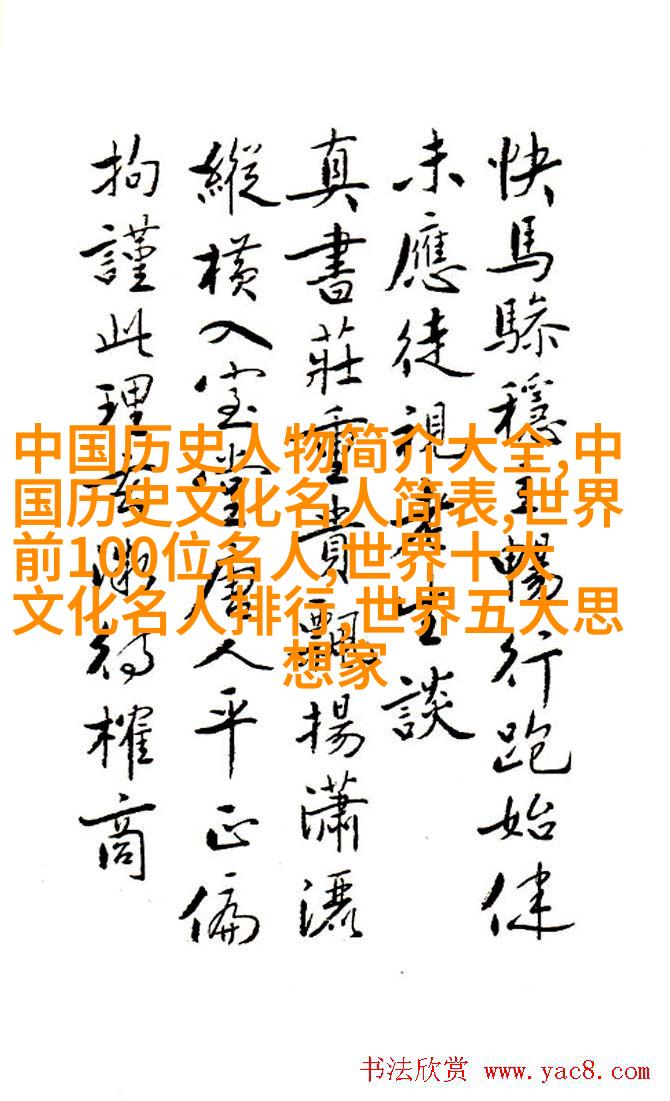 快馬穩暢行跑始健
未應徒視老生談
真書莊重貴飄揚瀟灑
縱橫入室堂唐人平正偏
拘謹此理待榷商
中国历史人物简介大全,中
国历史文化名人简表,世界
前100位名人,世界十大
文化名人排行,世界五大思
想家
书法欣赏 www.yac8.com